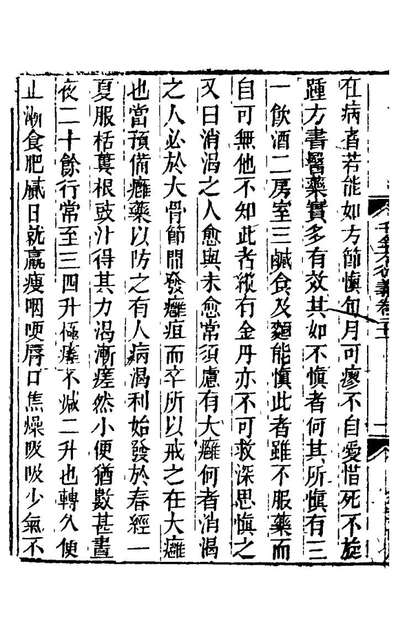 在病者若能如方節慎旬月可瘳不自愛惜死不旋
踵方書醫藥實多有效其如不慎者何其所慎有三
一飲酒二房室三鹹食及麵能慎此者雖不服藥而
自可無他不知此者縱有金丹亦不可救深思慎之
又曰消渴之人愈與未愈常須慮有大癰何者消渴
之人必於大骨節間發癰疽而卒所以戒之在大癰
也當預備癰藥以防之有人病渴利始發於春經一
夏服栝蔞根豉汁得其力渴漸瘥然小便猶數甚晝
夜二十餘行常至三四升極瘥不減二升也轉久便
止漸食肥膩日就羸瘦咽哽脣口焦燥吸吸少氣不